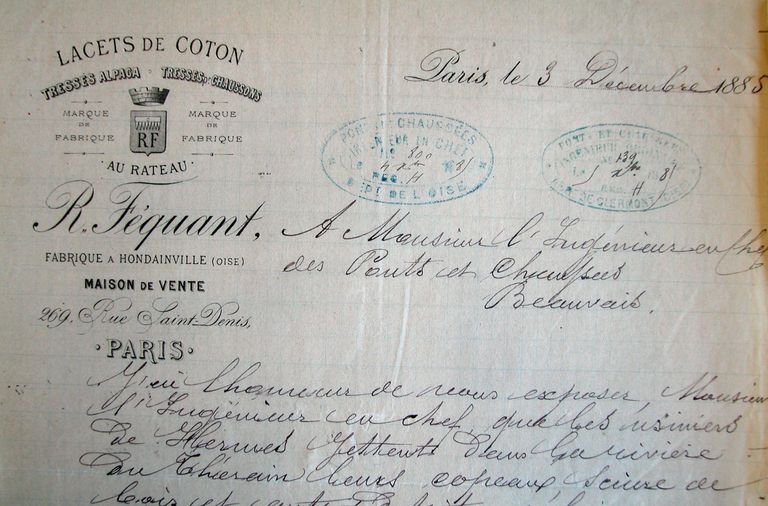 LACETS DE COTON
TRESSES ALPAGA · TRESSES P. CHAUSSONS
MARQUE DE FABRIQUE
RF
MARQUE DE FABRIQUE
AU RATEAU
R. Féquant,
FABRIQUE A HONDAINVILLE (OISE)
MAISON DE VENTE
269, Rue Saint-Denis,
· PARIS ·
Paris, le 3 Décembre 1885
PONTS & CHAUSSÉES
INGÉNIEUR EN CHEF
REG. H
DEPT DE L'OISE
PONTS ET CHAUSSÉES
139
DE CLERMONT
A Monsieur l'Ingénieur en Chef
des Ponts et Chaussées
Beauvais.
J'ai l'honneur de vous exposer, Monsieur
l'Ingénieur en chef, que les usiniers
de Hermes jettent dans la rivière
du Thérain leurs copeaux, sciure de
bois et